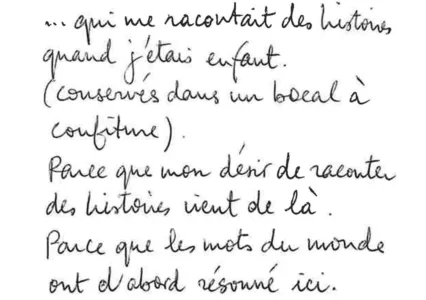 ... qui me racontait des histoires
quand j'étais enfant.
(conservés dans un bocal à
confiture).
Parce que mon désir de raconter
des histoires vient de là.
Parce que les mots du monde
ont d'abord résonné ici.